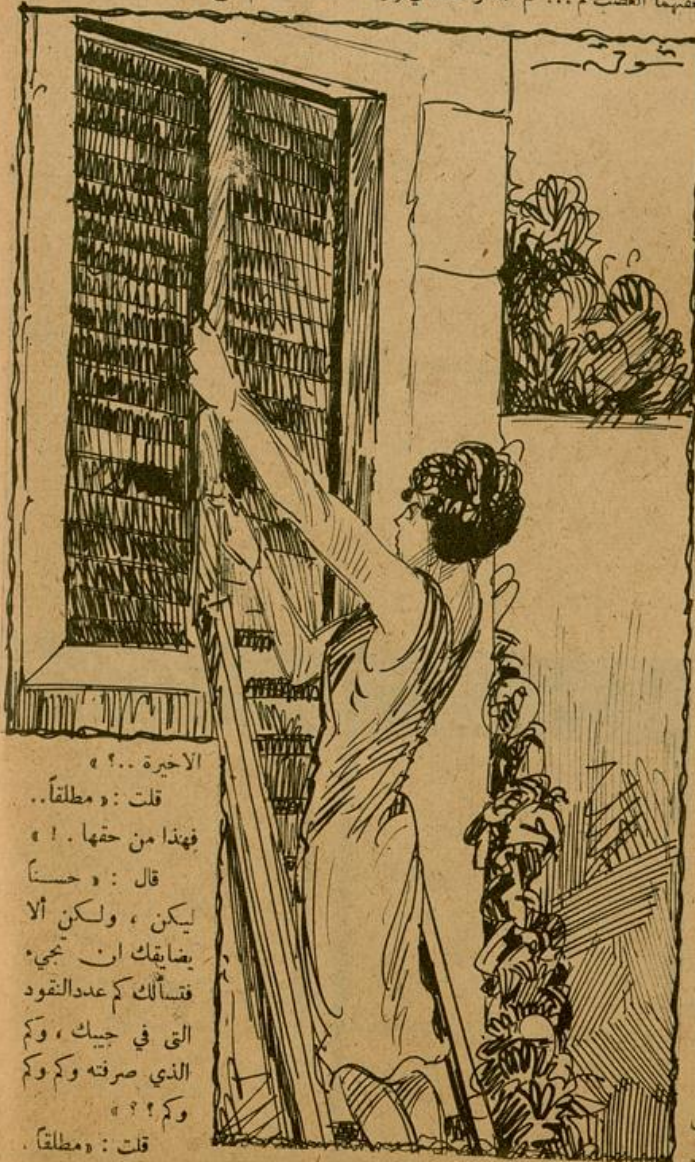 الاخيرة ..؟ »
قلت : « مطلقاً..
فهذا من حقها . ! »
قال : « حسناً
ليكن ، ولكن ألا
يضايقك ان تجيء
فتسألك كم عدد النقود
التي في جيبك ، وكم
الذي صرفته وكم وكم
وكم ؟ ؟ »
قلت : « مطلقاً .